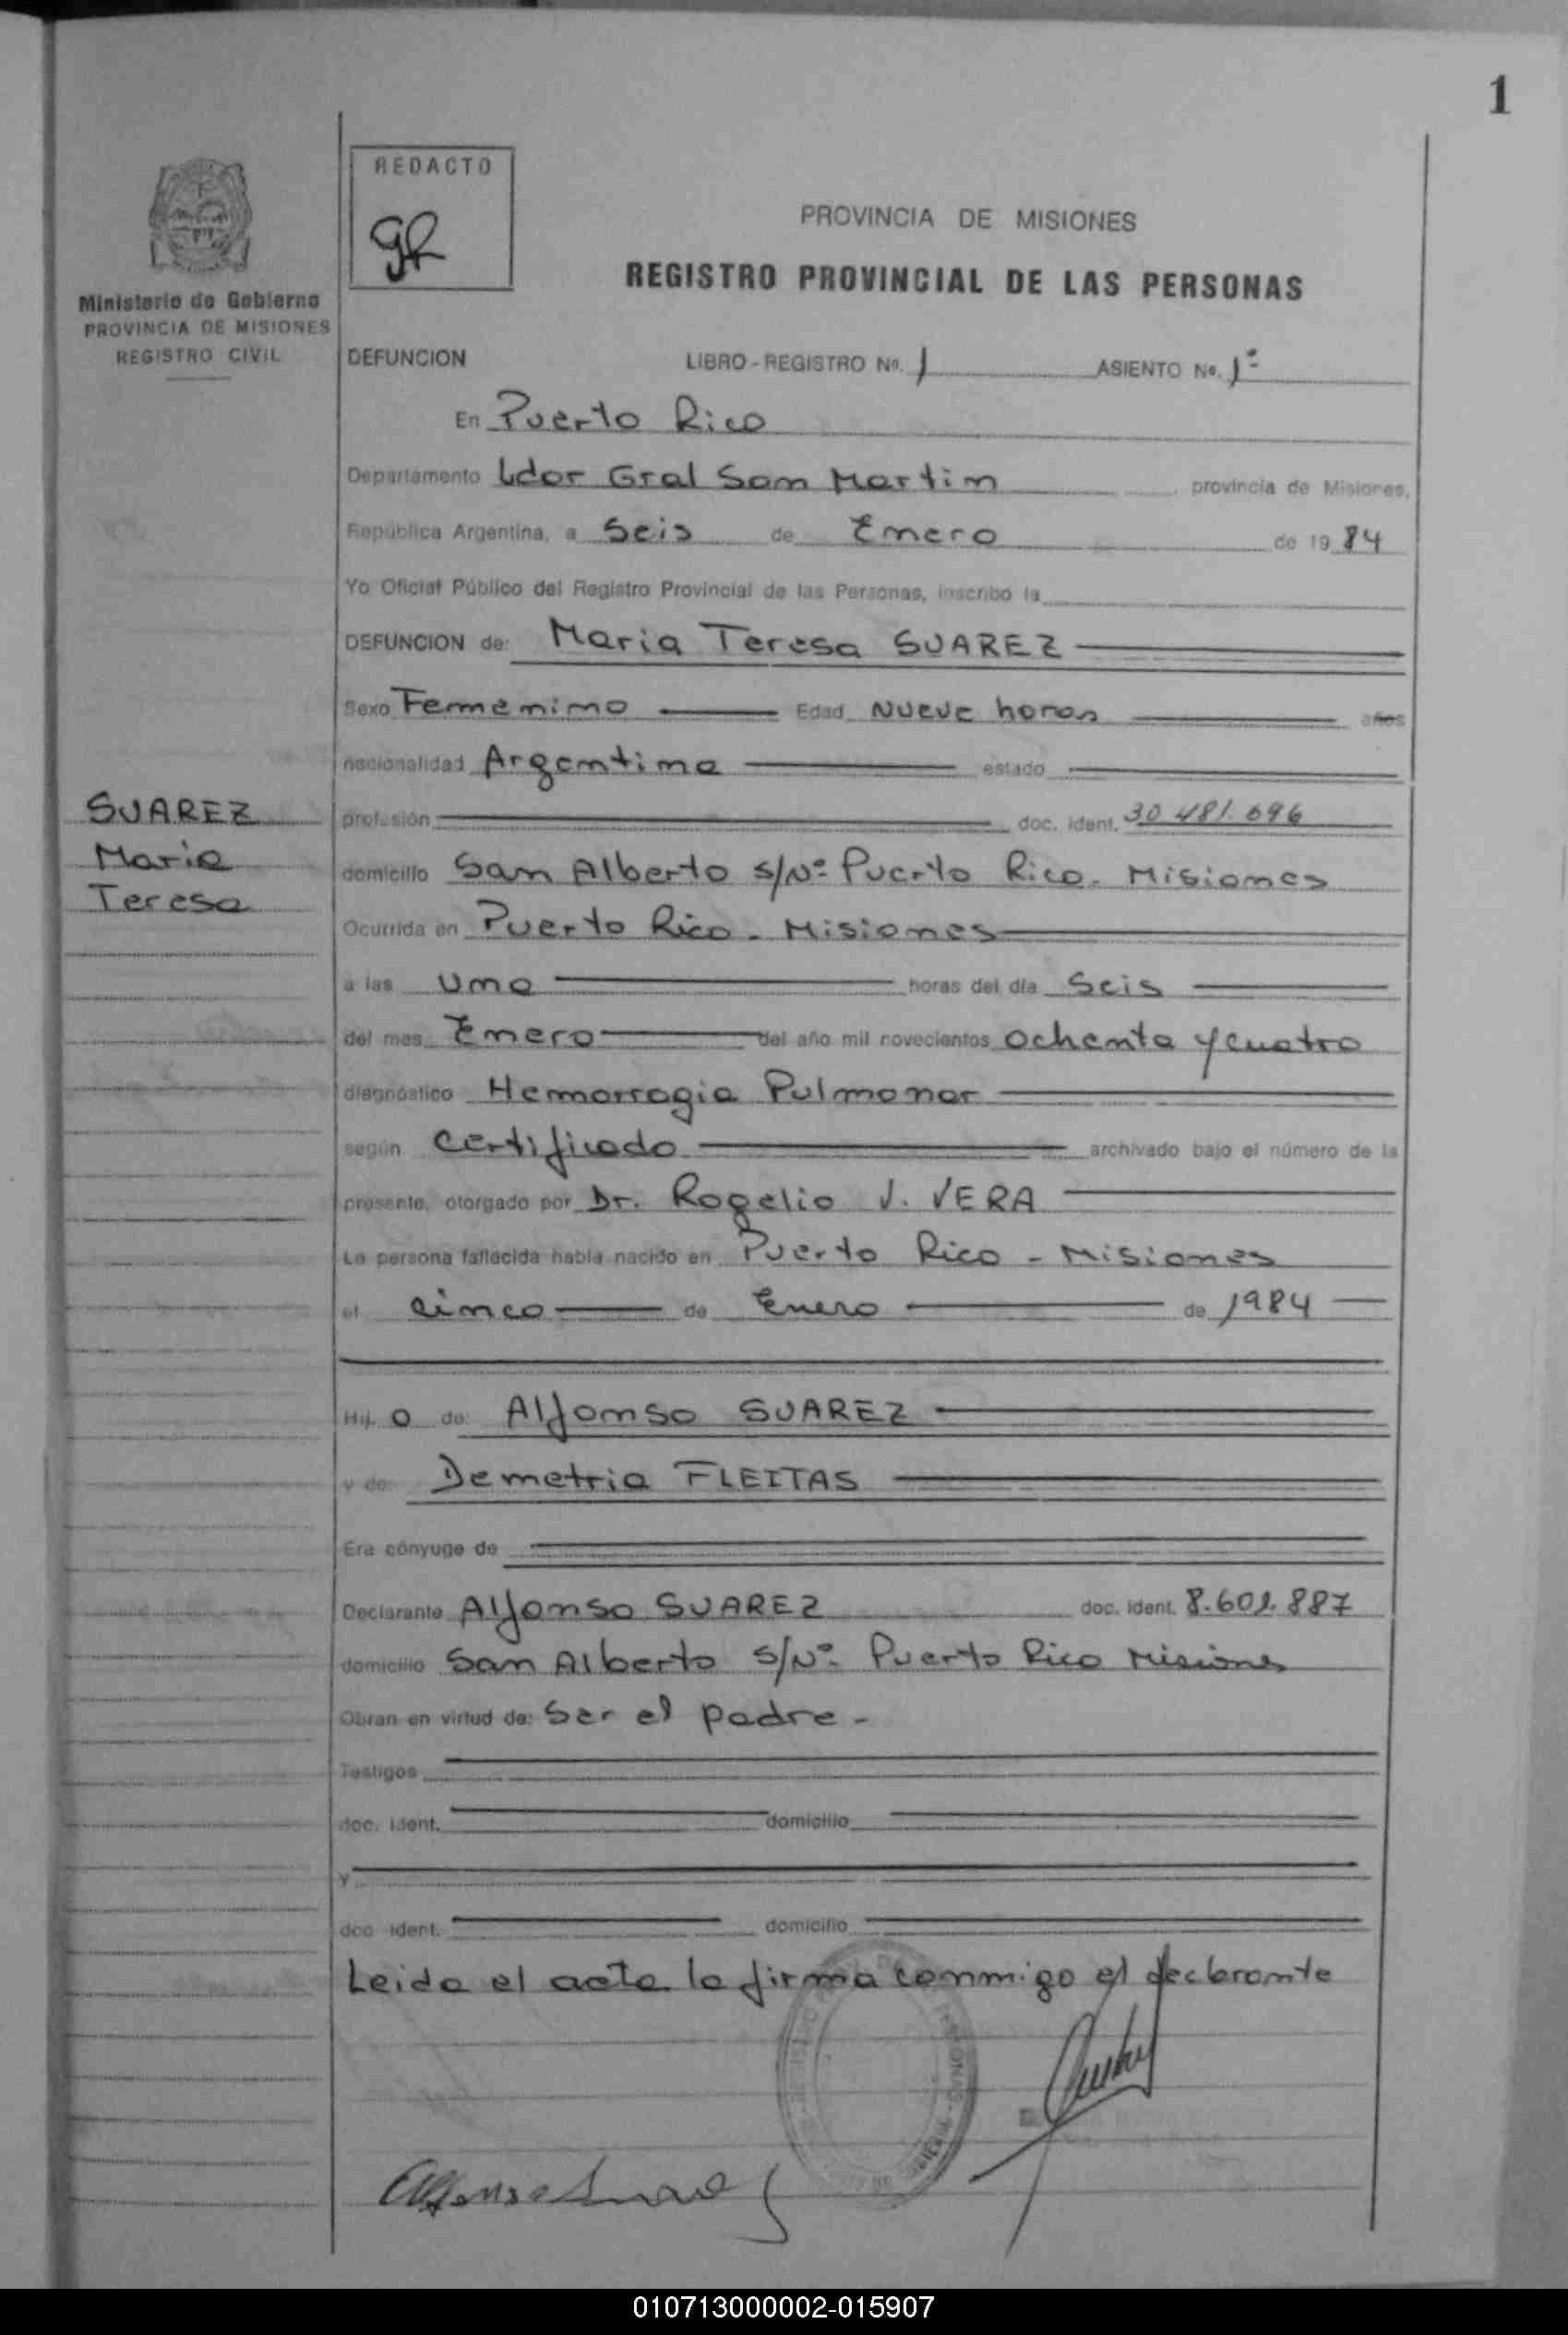 1
REDACTO
gR
Ministerio de Gobierno
PROVINCIA DE MISIONES
REGISTRO CIVIL
PROVINCIA DE MISIONES
REGISTRO PROVINCIAL DE LAS PERSONAS
DEFUNCION LIBRO - REGISTRO No. 1 ASIENTO No. 1º
En Puerto Rico
Departamento Ldor Gral San Martin provincia de Misiones,
República Argentina, a Seis de Enero de 1984
Yo Oficial Público del Registro Provincial de las Personas, inscribo la
DEFUNCION de: Maria Teresa SUAREZ
Sexo Femenino Edad Nueve horas años
nacionalidad Argentina estado
profesión doc. ident. 30 481.696
SUAREZ
Maria
Teresa
domicilio San Alberto s/Nº Puerto Rico. Misiones
Ocurrida en Puerto Rico - Misiones
a las Una horas del día Seis
del mes Enero del año mil novecientos ochenta y cuatro
diagnóstico Hemorragia Pulmonar
según Certificado archivado bajo el número de la
presente, otorgado por Dr. Rogelio J. VERA
La persona fallecida había nacido en Puerto Rico - Misiones
el cinco de Enero de 1984
Hij o de: Alfonso SUAREZ
y de: Demetria FLEITAS
Era cónyuge de
Declarante Alfonso SUAREZ doc. ident. 8.601.887
domicilio San Alberto s/Nº Puerto Rico Misiones
Obran en virtud de: Ser el padre -
Testigos
doc. ident. domicilio
y
doc. ident. domicilio
Leida el acta la firma conmigo el declarante
Alfonso Suarez
010713000002-015907